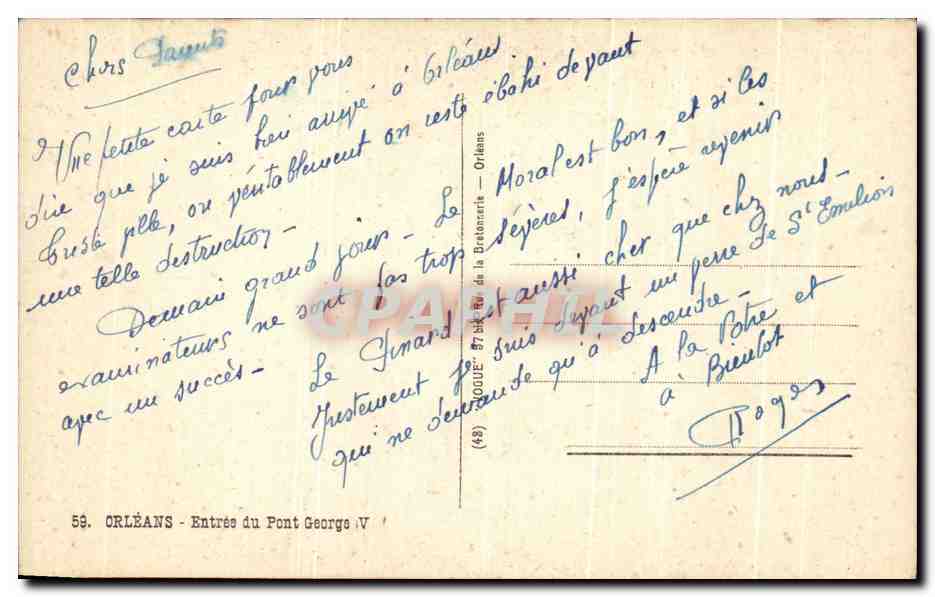 Chers Parents
Une petite carte pour vous
dire que je suis bien arrivé à Orléans
triste ville, on véritablement on reste ébahi devant
une telle destruction -
Demain grand jour - Le Moral est bon, et si les
examinateurs ne sont pas trop sévères, j'espère revenir
avec un succès -
Le Pinard est aussi cher que chez nous -
Justement je suis devant un verre de St Emilion
qui ne demande qu'à descendre -
A la Votre et
à Bientot
Roger
59. ORLÉANS - Entrée du Pont George V
(48) "VOGUE" 57 bis, Rue de la Bretonnerie — Orléans
CPARHIL